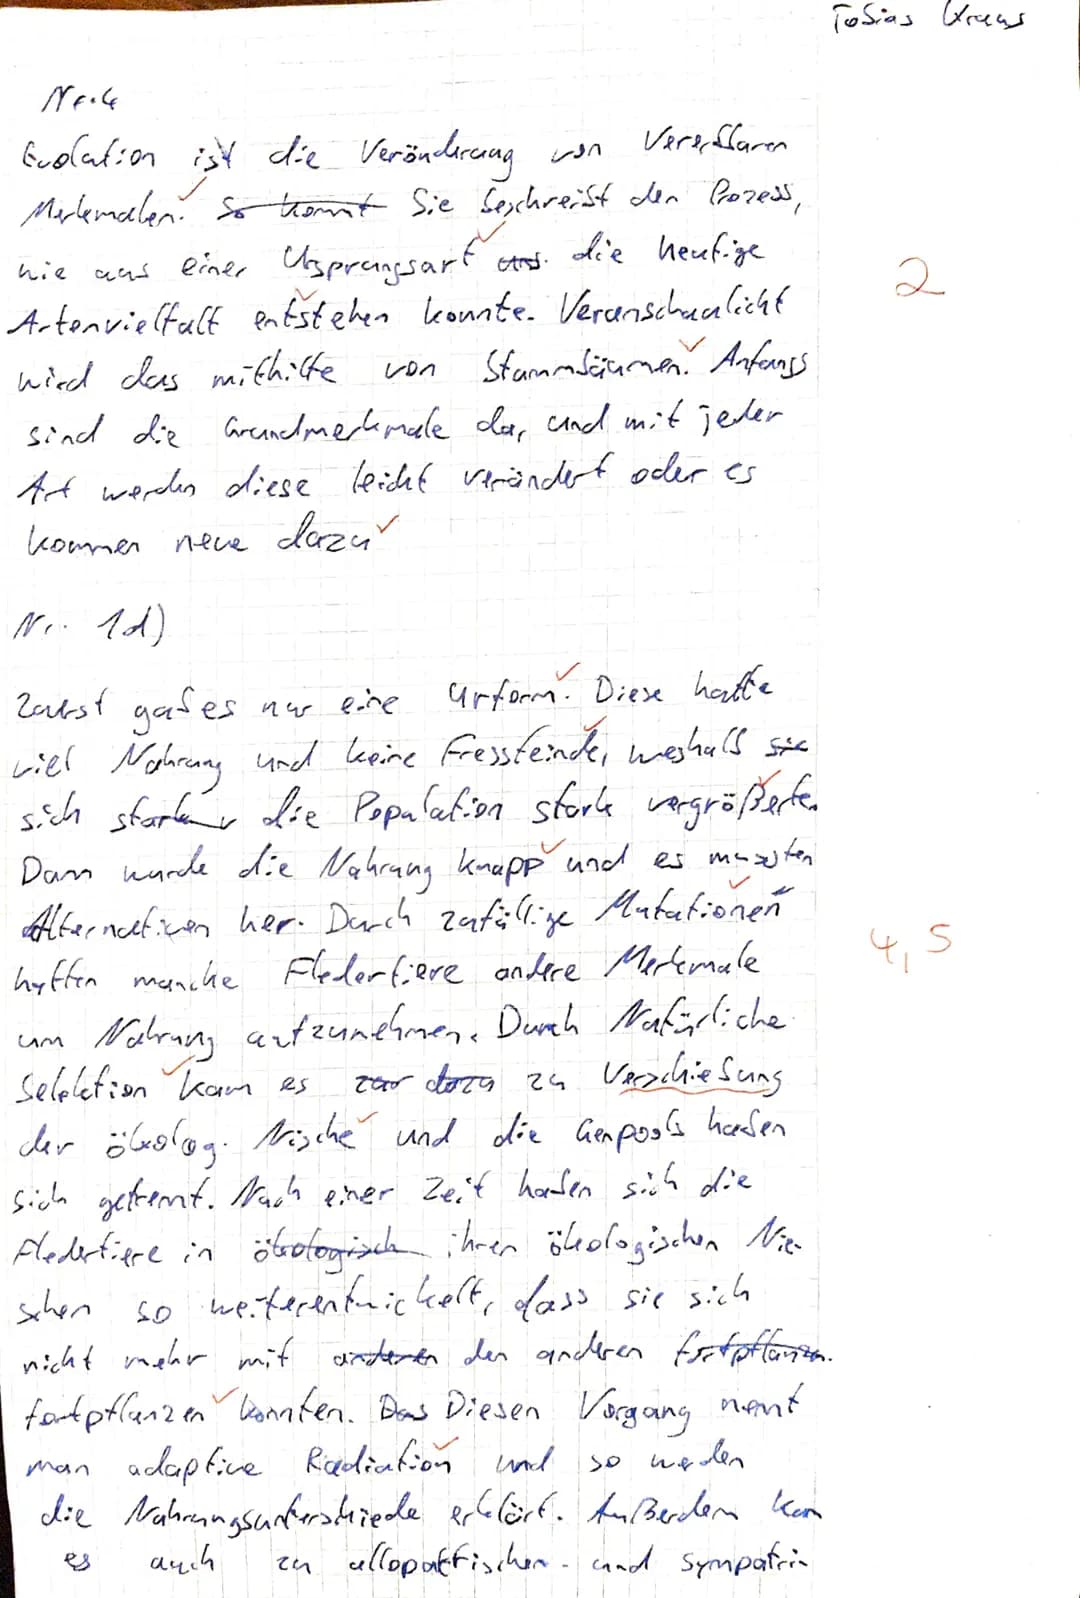 Tobias Kraus
Nr. 4
Evolution ist die Veränderung von vererbbaren
Merkmalen. So kommt Sie beschreibt den Prozess,
wie aus einer Ursprungsart aus. die heutige
2
Artenvielfalt entstehen konnte. Veranschaulicht
wird das mithilfe von Stammbäumen. Anfangs
sind die Grundmerkmale da, und mit jeder
Art werden diese leicht verändert oder es
kommen neue dazu
Nr. 1d)
Zuerst gab es nur eine Urform. Diese hatte
viel Nahrung und keine Fressfeinde, weshalb sie
sich stark die Population stark vergrößerte.
Dann wurde die Nahrung knapp und es mussten
Alternativen her. Durch zufällige Mutationen
4,5
hatten manche Fledertiere andere Merkmale
um Nahrung aufzunehmen. Durch Natürliche
Selektion kam es zur dazu zu Verschiebung
der ökolog. Nische und die Genpools haben
sich getrennt. Nach einer Zeit haben sich die
Fledertiere in ökologisch ihren ökologischen Nie-
schen so weiterentwickelt, dass sie sich
nicht mehr mit anderen den anderen fortpflanzen.
fortpflanzen konnten. Das Diesen Vorgang nennt
man adaptive Radiation und so werden
die Nahrungsunterschiede erklärt. Außerdem kam
es auch zu allopattrischen- und sympatri-